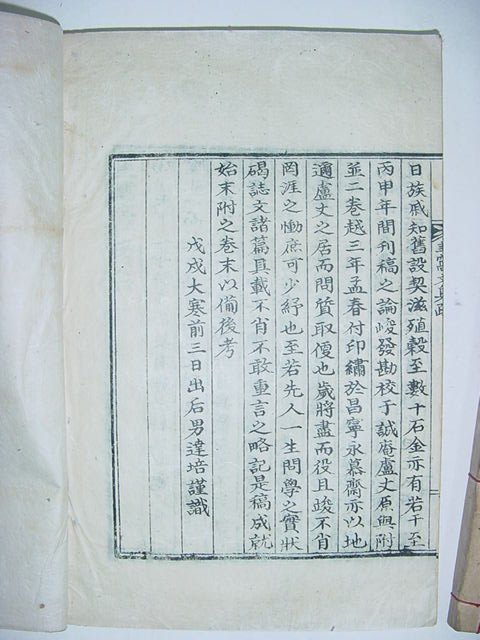 日族戚知舊設契滋殖穀至數十石金亦有若干至
丙甲年間刊稿之論峻發勘校于誠庵盧丈原興附
並二卷越三年孟春付印繡於昌寧永慕齋亦以地
適盧丈之居而問質取便也歲將盡而役且竣不肖
罔涯之慟庶可少紓也至若先人一生問學之實狀
碣誌文諸篇具載不肖不敢重言之略記是稿成就
始末附之卷末以備後考
戊戌大寒前三日出后男達培謹識